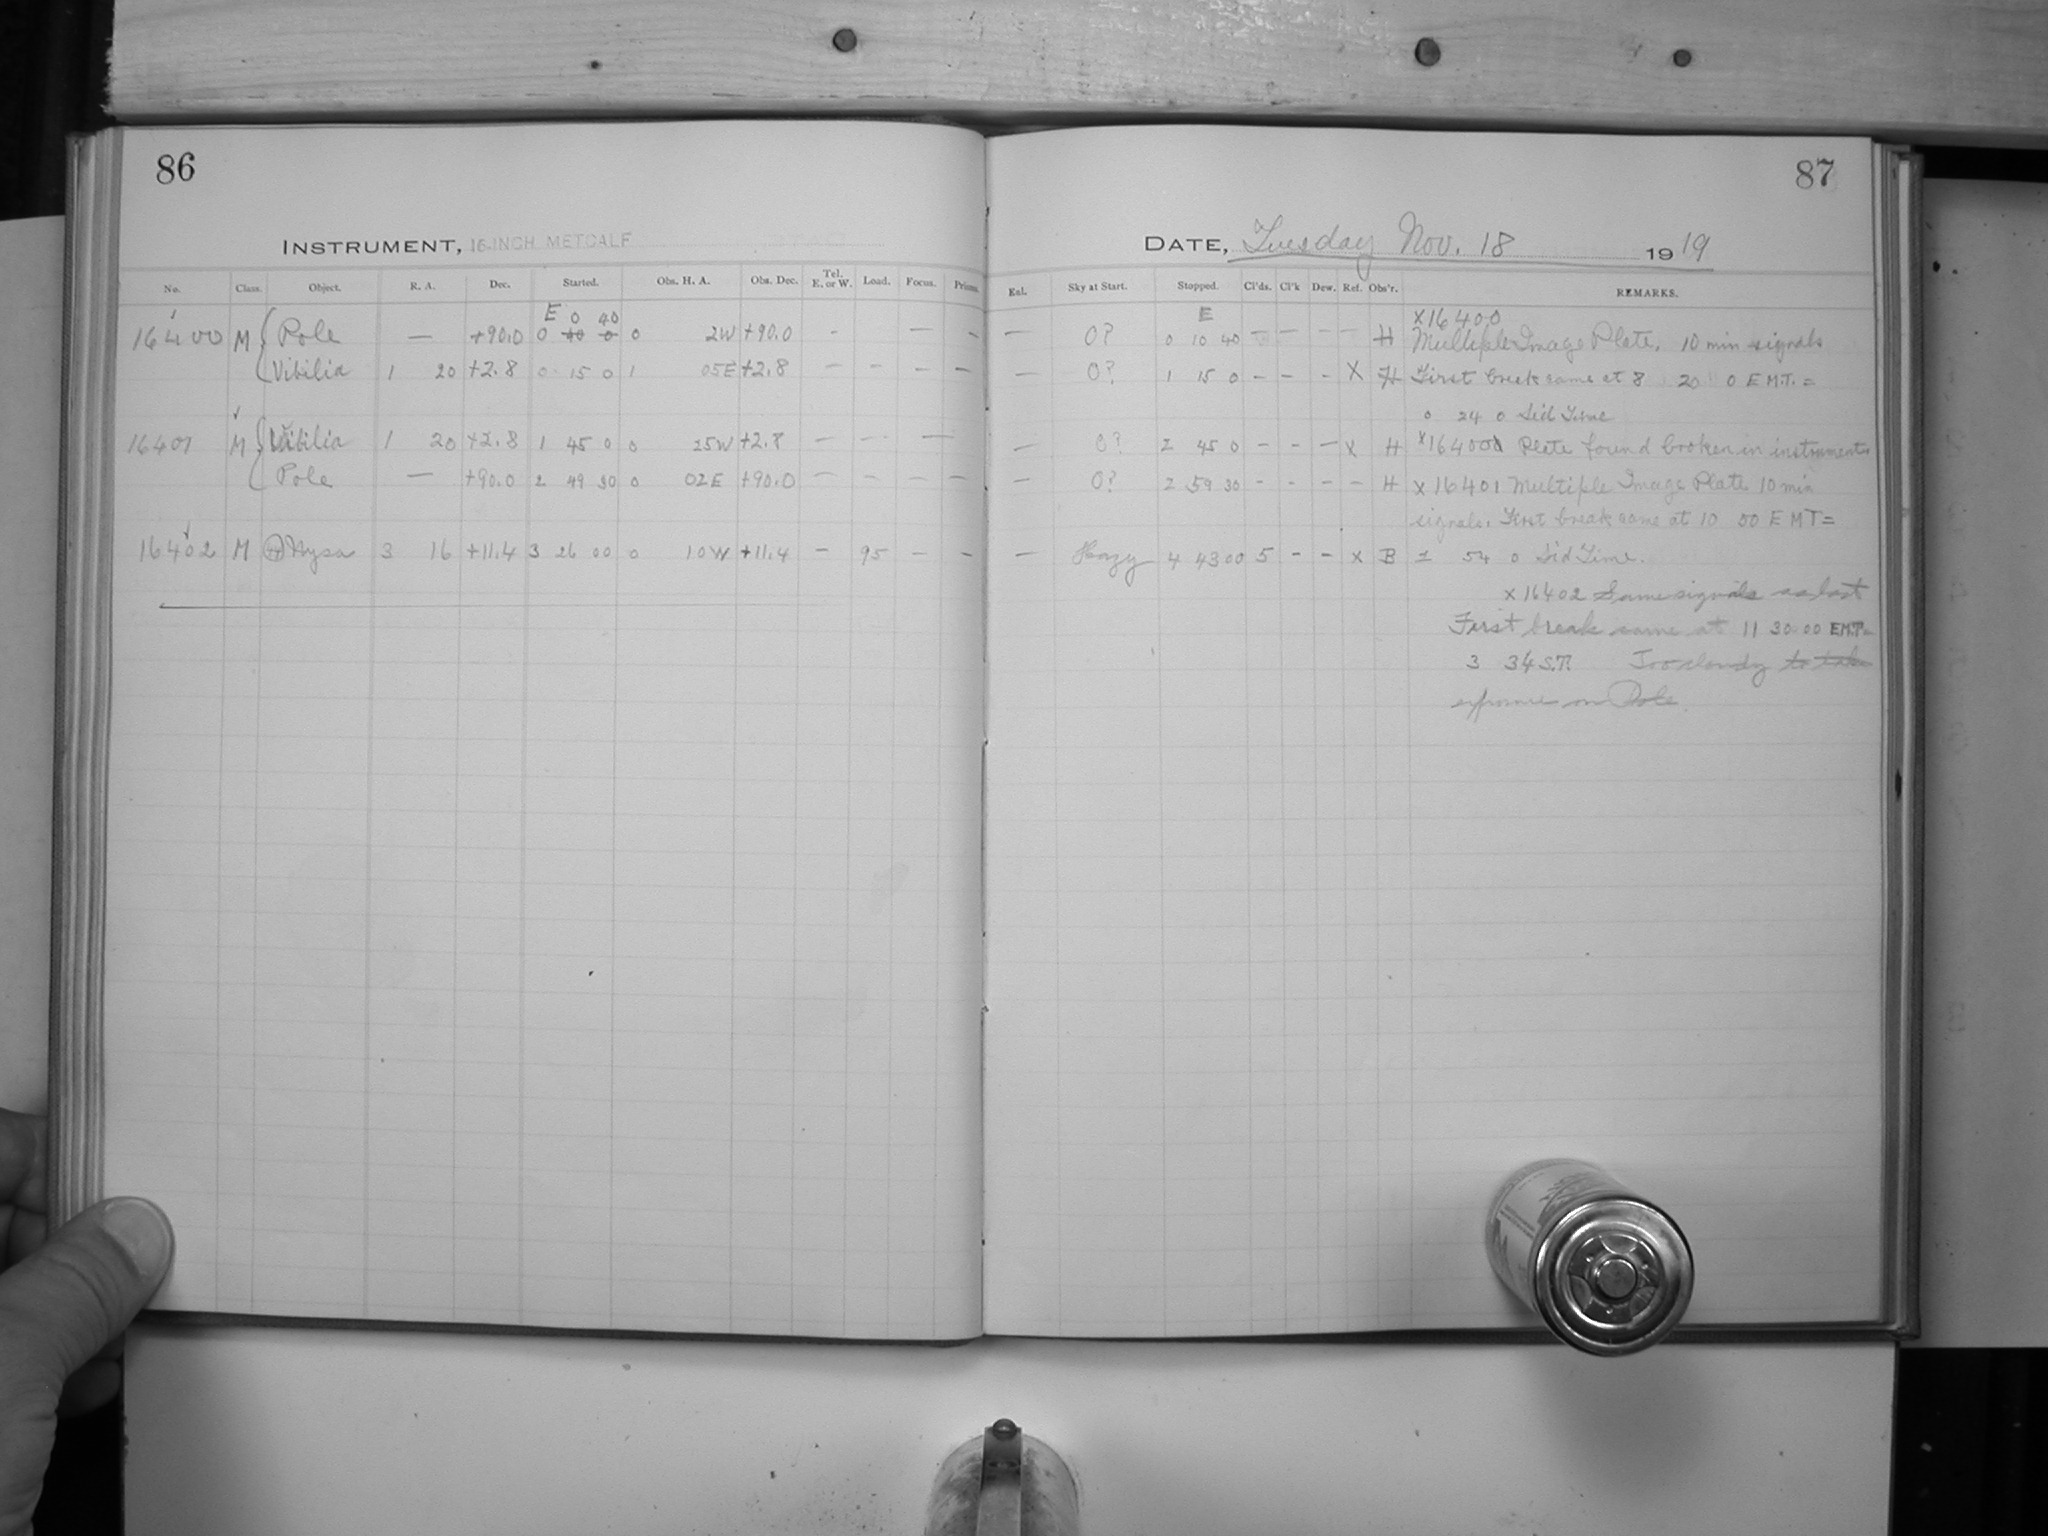 86
INSTRUMENT, 16-INCH METCALF
No. Class. Object. R. A. Dec. Started. Obs. H. A. Obs. Dec. Tel. E. or W. Load. Focus. Prisms
E 0 40
16400 M Pole — +90.0 0 40 0 0 2W +90.0 - — —
Vibilia 1 20 +2.8 0 15 0 1 05E +2.8 - - - -
16401 M Vibilia 1 20 +2.8 1 45 0 0 25W +2.8 — — —
Pole — +90.0 2 49 30 0 02E +90.0 — — — —
16402 M Nysa 3 16 +11.4 3 26 00 0 10W +11.4 - 95 - -
87
DATE, Tuesday Nov. 18 1919
Eal. Sky at Start. Stopped. Cl'ds. Cl'k Dew. Ref. Obs'r. REMARKS.
E ×16400
— 0? 0 10 40 — — — — H Multiple Image Plate. 10 min signals
— 0? 1 15 0 - - - X H First break came at 8 20 0 E M.T. =
0 24 0 Sid Time
— 0? 2 45 0 - - - X H ×16400 Plate found broken in instrument.
— 0? 2 59 30 - - - - H ×16401 Multiple Image Plate 10 min
signals. First break came at 10 50 E M T =
— Hazy 4 43 00 5 - - × B 2 54 0 Sid Time.
×16402 Same signals as last
First break came at 11 30 00 EMT=
3 34 S.T. Too cloudy to take
exposure on Pole.